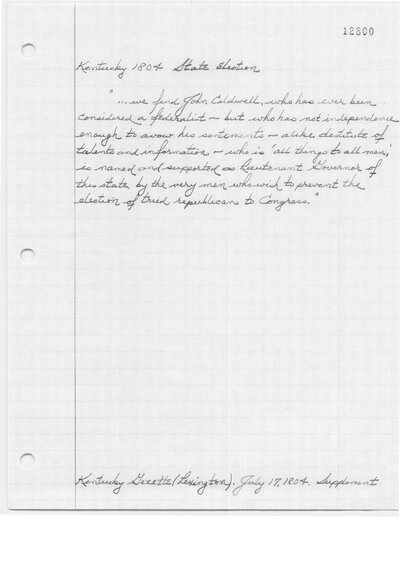 12800
Kentucky 1804 State election
"...we find John Caldwell, who has ever been
considered a federalist - but who has not independence
enough to avow his sentiments - alike destitute of
talents and information - who is 'all things to all men,'
is named and supported as Lieutenant Governor of
this state, by the very men who wish to prevent the
election of tried republicans to Congress."
Kentucky Gazette (Lexington). July 17, 1804. Supplement